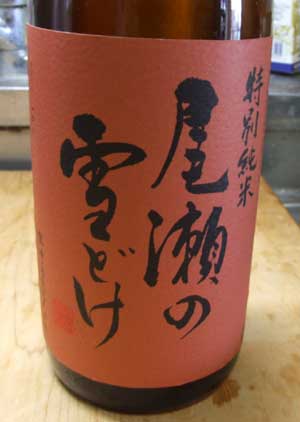 特別純米
尾瀬の
雪どけ